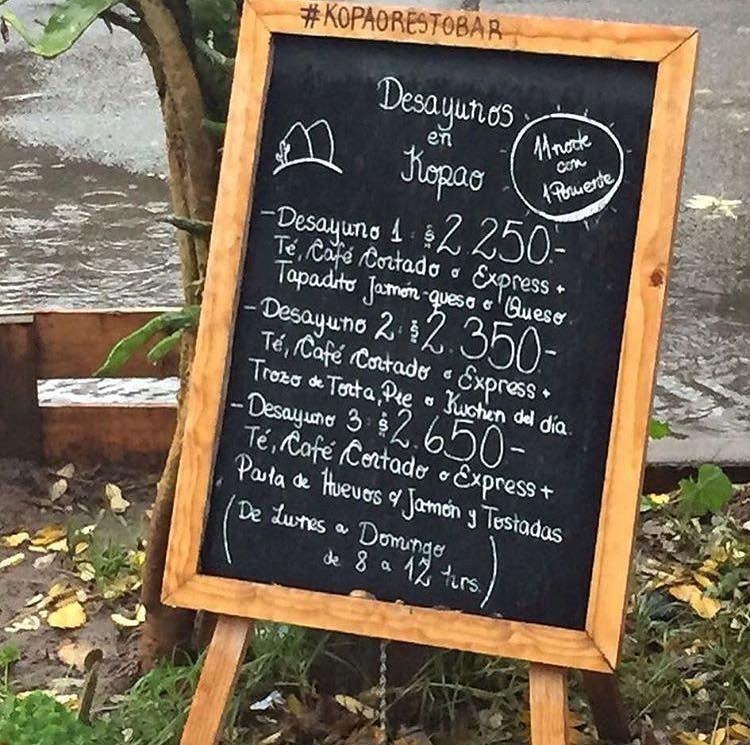 #KOPAORESTOBAR
Desayunos
en
Kopao
11 norte
con
1 Poniente
- Desayuno 1: $2 250.-
Té, Café Cortado o Express +
Tapadito Jamón-queso o Queso.
- Desayuno 2: $2.350-
Té, Café Cortado o Express +
Trozo de Torta, Pie o Kuchen del día.
- Desayuno 3: $2.650-
Té, Café Cortado o Express +
Paila de Huevos c/ Jamón y Tostadas
(De Lunes a Domingo
de 8 a 12 hrs.)